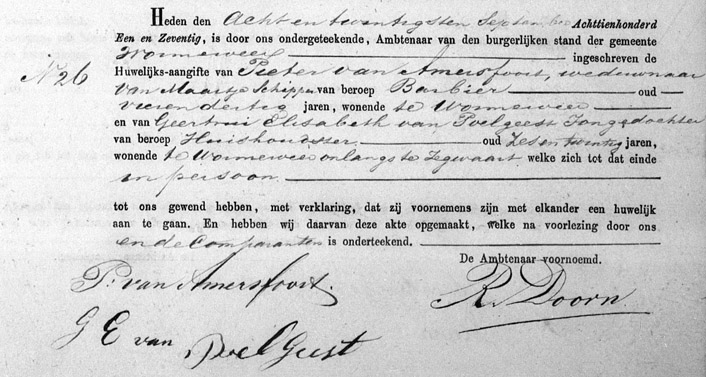 Heden den Acht en twintigsten September Achttienhonderd
Een en Zeventig, is door ons ondergeteekende, Ambtenaar van den burgerlijken stand der gemeente
Wormerveer ingeschreven de
No 26 Huwelijks-aangifte van Pieter van Amersfoort, weduwnaar
van Maartje Schipper van beroep Barbier oud
vierendertig jaren, wonende te Wormerveer
en van Geertrui Elisabeth van Poelgeest Jongedochter
van beroep Huishoudster oud Zes en twintig jaren,
wonende te Wormerveer onlangs te Zegwaart welke zich tot dat einde
in persoon
tot ons gewend hebben, met verklaring, dat zij voornemens zijn met elkander een huwelijk
aan te gaan. En hebben wij daarvan deze akte opgemaakt, welke na voorlezing door ons
en de Comparanten is onderteekend.
De Ambtenaar voornoemd.
P. van Amersfoort.
R. Doorn
G E van Poelgeest